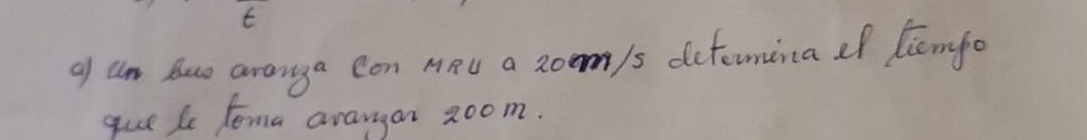 t
a) un bus avanza con MRU a 20m/s determina el tiempo
que le toma avanzar 200m.